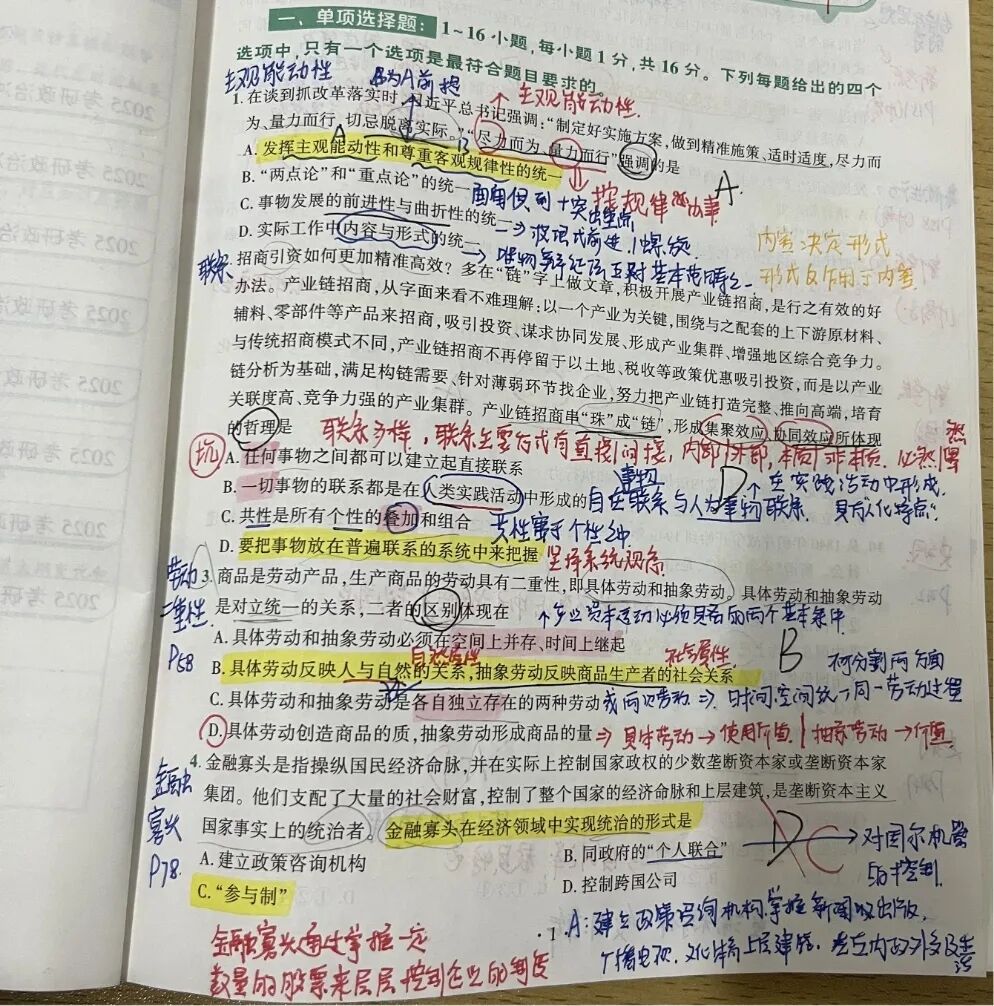 一、单项选择题：1~16 小题，每小题 1 分，共 16 分。下列每题给出的四个
选项中，只有一个选项是最符合题目要求的。
主观能动性 B为A前提 主观能动性.
1. 在谈到抓改革落实时，习近平总书记强调：“制定好实施方案，做到精准施策、适时适度，尽力而
为、量力而行，切忌脱离实际。”“尽力而为、量力而行”强调的是
A B
A. 发挥主观能动性和尊重客观规律性的统一
按规律办事
A.
B. “两点论”和“重点论”的统一
C. 事物发展的前进性与曲折性的统一
D. 实际工作中内容与形式的统一
内容决定形式
形式反作用于内容
联系
招商引资如何更加精准高效？多在“链”字上做文章，积极开展产业链招商，是行之有效的好
办法。产业链招商，从字面来看不难理解：以一个产业为关键，围绕与之配套的上下游原材料、
辅料、零部件等产品来招商，吸引投资、谋求协同发展、形成产业集群、增强地区综合竞争力。
与传统招商模式不同，产业链招商不再停留于以土地、税收等政策优惠吸引投资，而是以产业
链分析为基础，满足构链需要、针对薄弱环节找企业，努力把产业链打造完整、推向高端，培育
关联度高、竞争力强的产业集群。产业链招商串“珠”成“链”，形成集聚效应、协同效应所体现
的哲理是
联系多样，联系主要存式有直接间接，内部外部，本质非本质.
坑
A. 任何事物之间都可以建立起直接联系
事物 D 在实践活动中形成.
B. 一切事物的联系都是在人类实践活动中形成的 自在联系与人为事物联系.
C. 共性是所有个性的叠加和组合 共性寓于个性之中
D. 要把事物放在普遍联系的系统中来把握 坚持系统观点
劳动
二重性
P58
3. 商品是劳动产品，生产商品的劳动具有二重性，即具体劳动和抽象劳动。具体劳动和抽象劳动
是对立统一的关系，二者的区别体现在 产业资本运动必须具备的两个基本条件
A. 具体劳动和抽象劳动必须在空间上并存、时间上继起
自然属性 社会属性. B 不可分割两方面
B. 具体劳动反映人与自然的关系，抽象劳动反映商品生产者的社会关系
C. 具体劳动和抽象劳动是各自独立存在的两种劳动或两次劳动 ⇒ 时间.空间统一同一劳动过程
D. 具体劳动创造商品的质，抽象劳动形成商品的量 ⇒ 具体劳动→使用价值 | 抽象劳动→价值
金融
寡头
P78.
4. 金融寡头是指操纵国民经济命脉，并在实际上控制国家政权的少数垄断资本家或垄断资本家
集团。他们支配了大量的社会财富，控制了整个国家的经济命脉和上层建筑，是垄断资本主义
国家事实上的统治者。金融寡头在经济领域中实现统治的形式是
D C → 对国家机器
的控制.
A. 建立政策咨询机构
B. 同政府的“个人联合”
C. “参与制”
D. 控制跨国公司
金融寡头通过掌握一定
数量的股票来层层控制企业的制度
· 1
A: 建立政策咨询机构.掌握新闻出版，
广播电视.文化体育上层建筑.
2025 考研政治
2025 考研政治
2025 考研政治
2025 考研